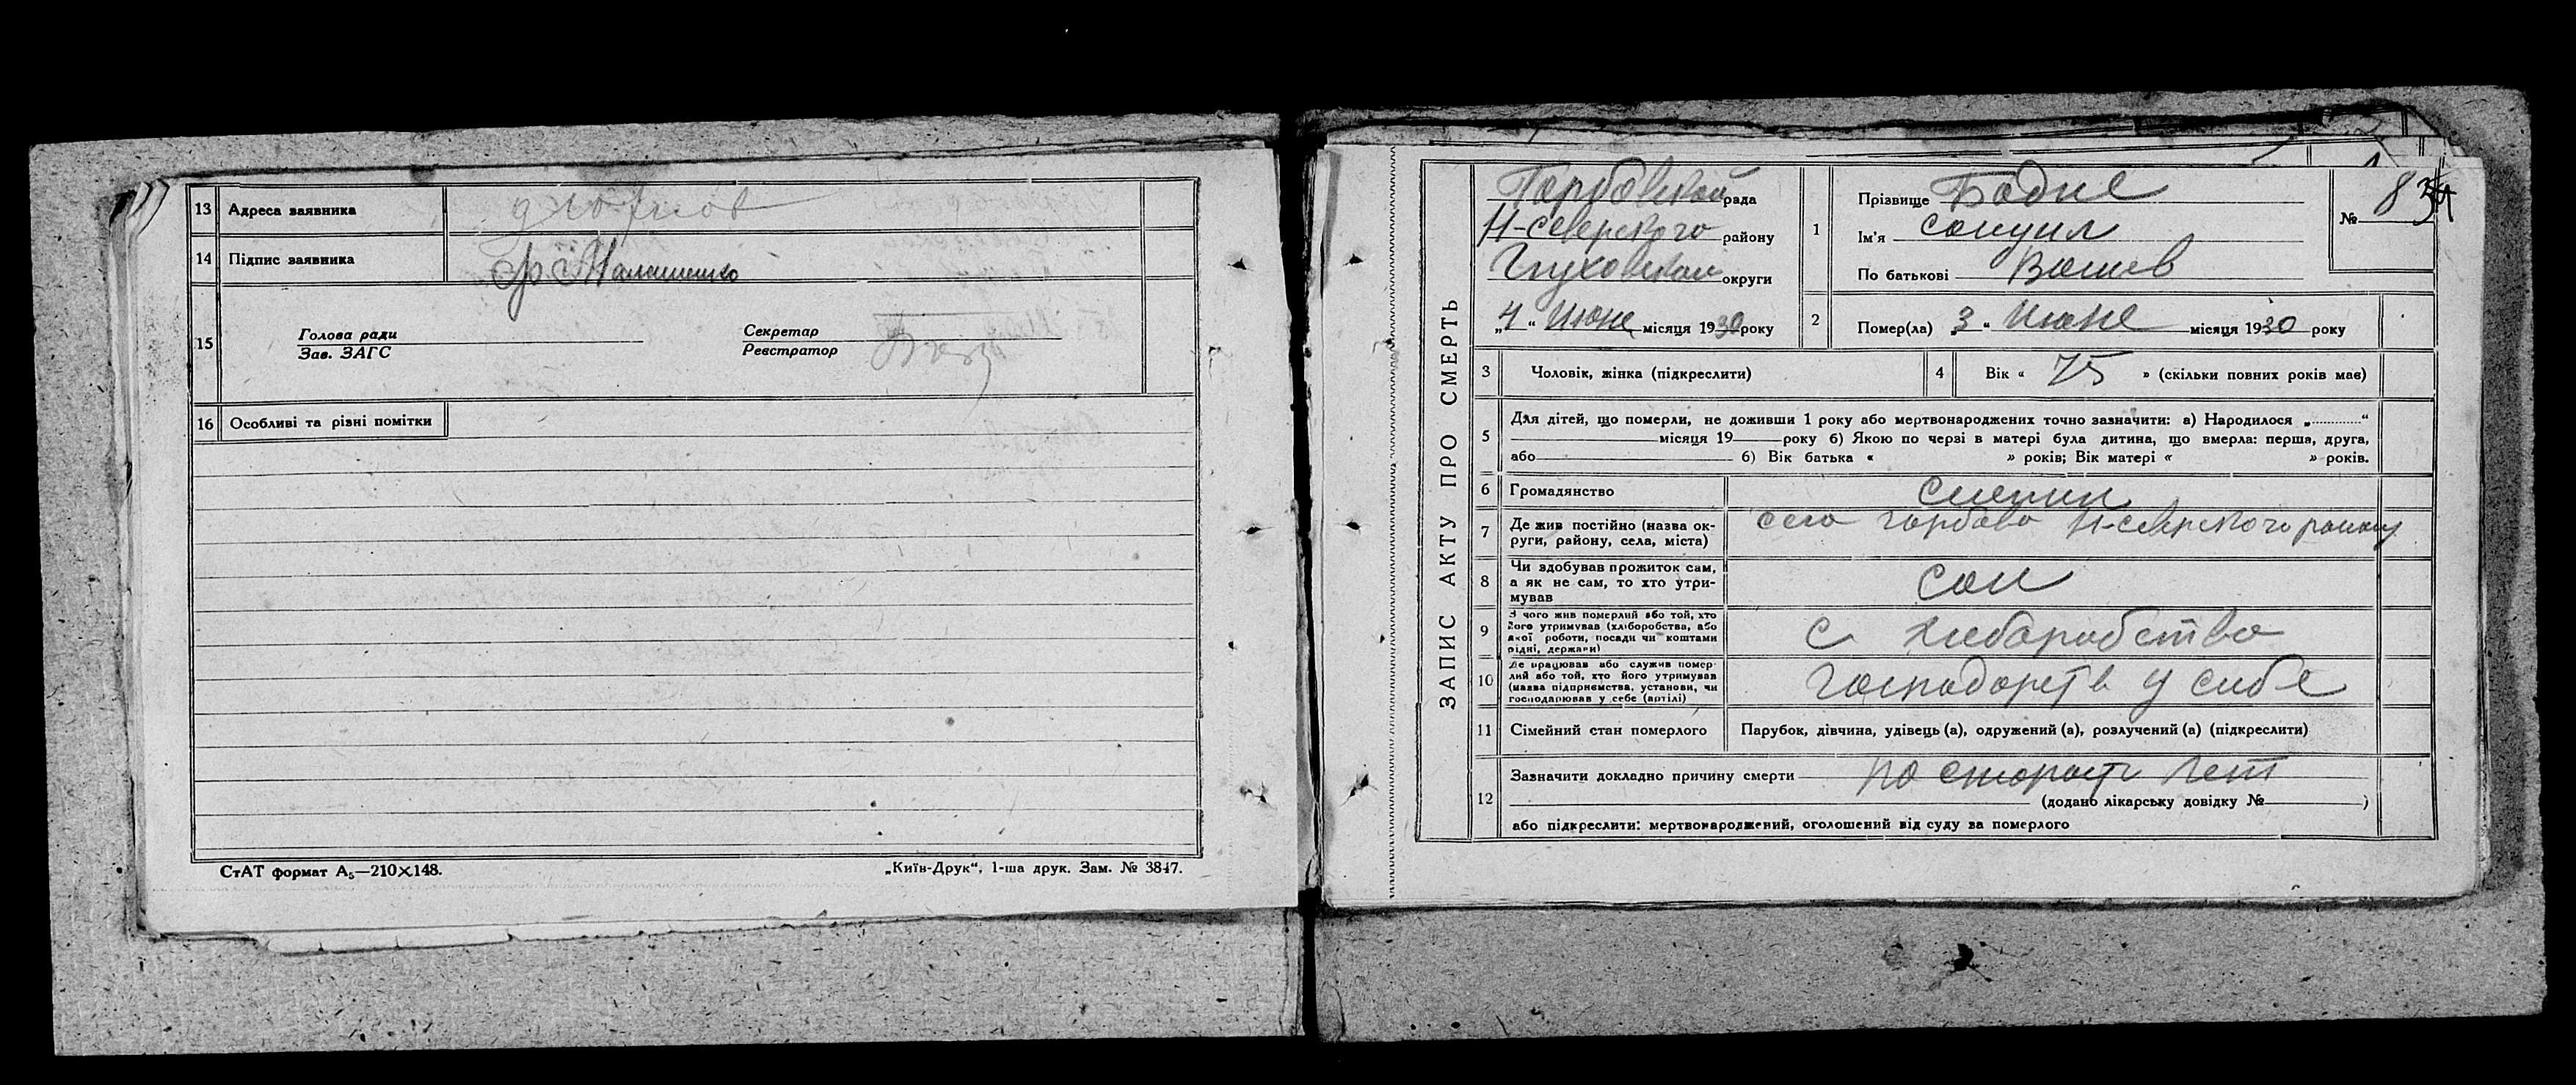 13 Адреса заявника
14 Підпис заявника
15 Голова ради
Зав. ЗАГС
Секретар
Реєстратор
16 Особливі та різні помітки
СтАТ формат А₅—210×148.
„Київ-Друк“, 1-ша друк. Зам. № 3847.
ЗАПИС АКТУ ПРО СМЕРТЬ
Горбовской рада
Н-северского району
Глуховской округи
„4“ Июне місяця 1930 року
1 Прізвище
Ім'я
По батькові
№ 8
2 Помер(ла) 3 „ Июне місяця 1930 року
3 Чоловік, жінка (підкреслити)
4 Вік « 75 » (скільки повних років має)
5 Для дітей, що померли, не доживши 1 року або мертвонароджених точно зазначити: а) Народилося „............“
місяця 19 року б) Якою по черзі в матері була дитина, що вмерла: перша, друга,
або б) Вік батька « » років; Вік матері « » років.
6 Громадянство
7 Де жив постійно (назва ок-
руги, району, села, міста)
село горбово Н-северского району
8 Чи здобував прожиток сам,
а як не сам, то хто утри-
мував
сам
9 З чого жив померлий або той, хто
його утримував (хліборобства, або
якої роботи, посади чи коштами
рідні, держави)
с хлебаробства
10 Де працював або служив помер-
лий або той, хто його утримував
(назва підприємства, установи, чи
господарював у себе (артілі)
у себе
11 Сімейний стан померлого
Парубок, дівчина, удівець (а), одружений (а), розлучений (а) (підкреслити)
12 Зазначити докладно причину смерти по старости лет
(додано лікарську довідку № )
або підкреслити: мертвонароджений, оголошений від суду за померлого